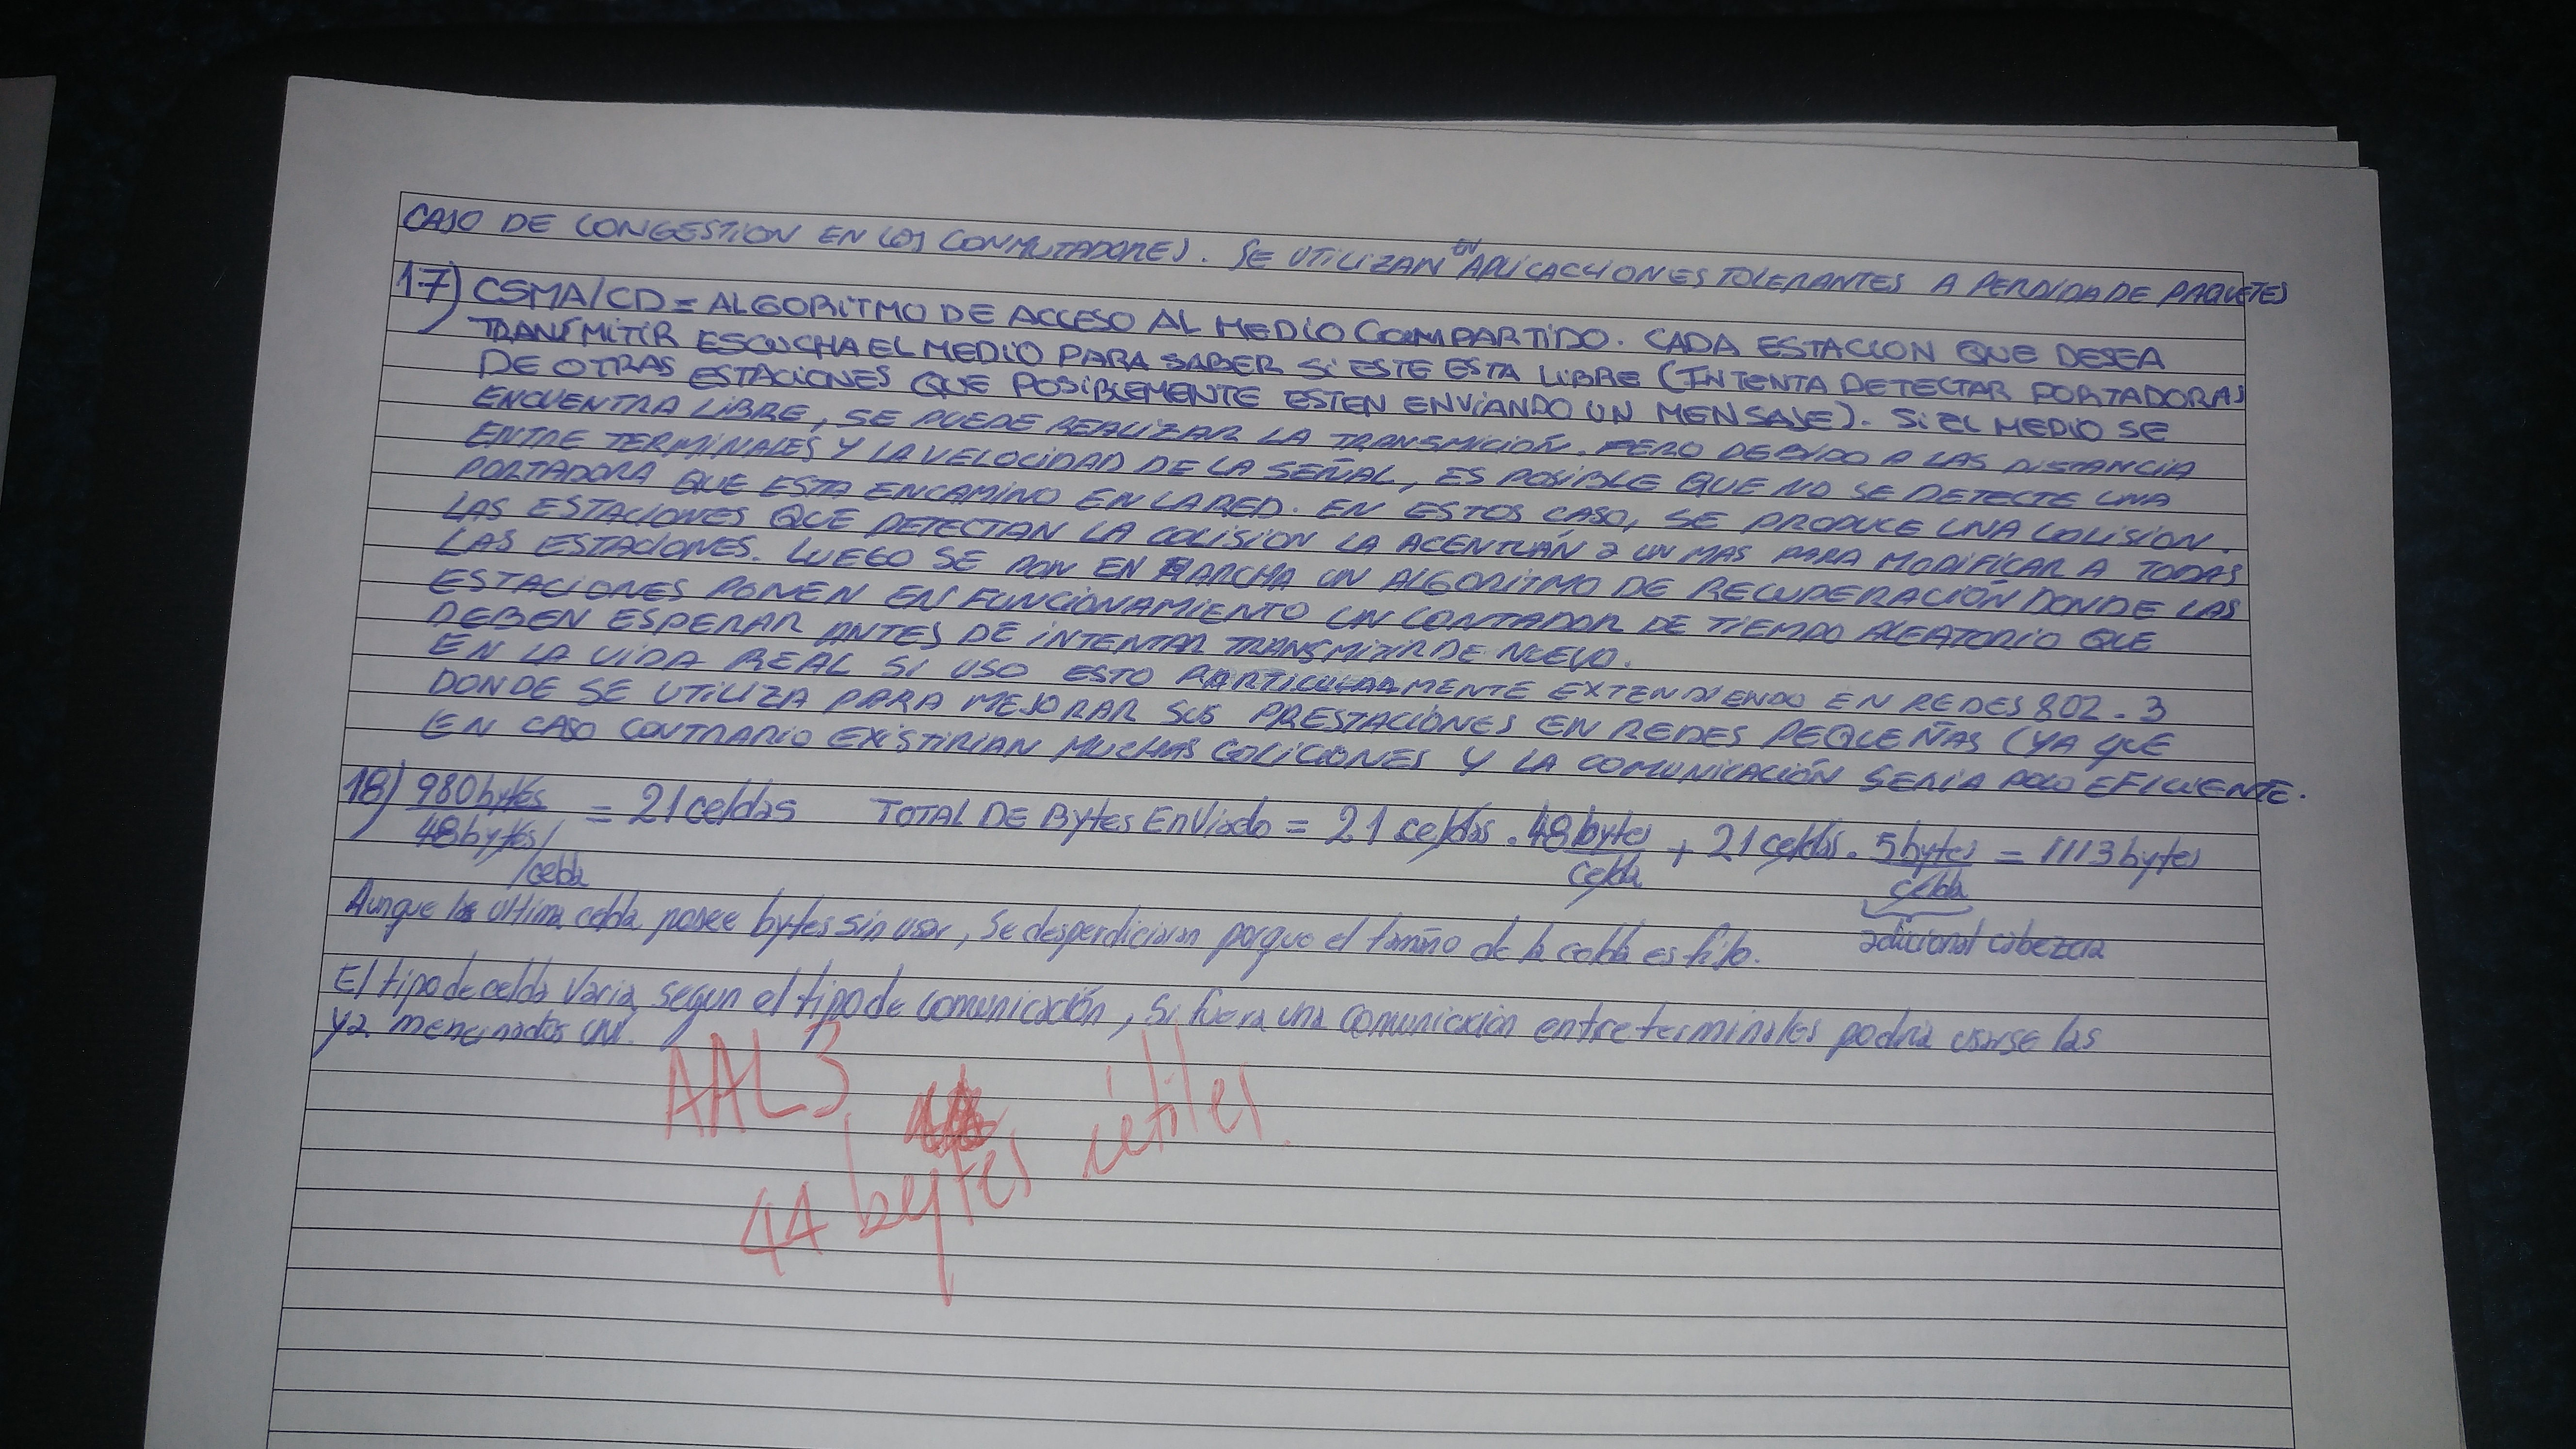 CASO DE CONGESTION EN LOS CONMUTADORES. SE UTILIZAN EN APLICACCIONES TOLERANTES A PERDIDA DE PAQUETES
17) CSMA/CD = ALGORITMO DE ACCESO AL MEDIO COMPARTIDO. CADA ESTACION QUE DESEA
TRANSMITIR ESCUCHA EL MEDIO PARA SABER SI ESTE ESTA LIBRE (INTENTA DETECTAR PORTADORAS
DE OTRAS ESTACIONES QUE POSIBLEMENTE ESTEN ENVIANDO UN MENSAJE). SI EL MEDIO SE
ENCUENTRA LIBRE, SE PUEDE REALIZAR LA TRANSMICIÓN. PERO DEBIDO A LAS DISTANCIA
ENTRE TERMINALES Y LA VELOCIDAD DE LA SEÑAL, ES POSIBLE QUE NO SE DETECTE UNA
PORTADORA QUE ESTA EN CAMINO EN LA RED. EN ESTOS CASO, SE PRODUCE UNA COLISION.
LAS ESTACIONES QUE DETECTAN LA COLISION LA ACENTUÁN 2 UN MAS PARA MODIFICAR A TODAS
LAS ESTACIONES. LUEGO SE PON EN MARCHA UN ALGORITMO DE RECUPERACIÓN DONDE LAS
ESTACIONES PONEN EN FUNCIONAMIENTO UN CONTADOR DE TIEMPO ALEATORIO QUE
DEBEN ESPERAR ANTES DE INTENTAR TRANSMITIR DE NUEVO.
EN LA VIDA REAL SI USO ESTO PARTICULARMENTE EXTENDIENDO EN REDES 802.3
DONDE SE UTILIZA PARA MEJORAR SUS PRESTACIONES EN REDES PEQUEÑAS (YA QUE
EN CASO CONTRARIO EXISTIRIAN MUCHAS COLICIONES Y LA COMUNICACIÓN SERIA POCO EFICIENTE.
18) 980 bytes / 48 bytes/celda = 21 celdas TOTAL DE Bytes EnViado = 21 celdas . 48 bytes/celda + 21 celdas . 5 bytes/celda = 1113 bytes
adicional cabezera
Aunque la ultima celda posee bytes sin usar, se desperdiciaran porque el tamaño de la celda es fijo.
El tipo de celda varia segun el tipo de comunicación, si fuera una comunicacion entre terminales podria usarse las
ya mencinadas UNI.
AAL3
44 bytes útiles.